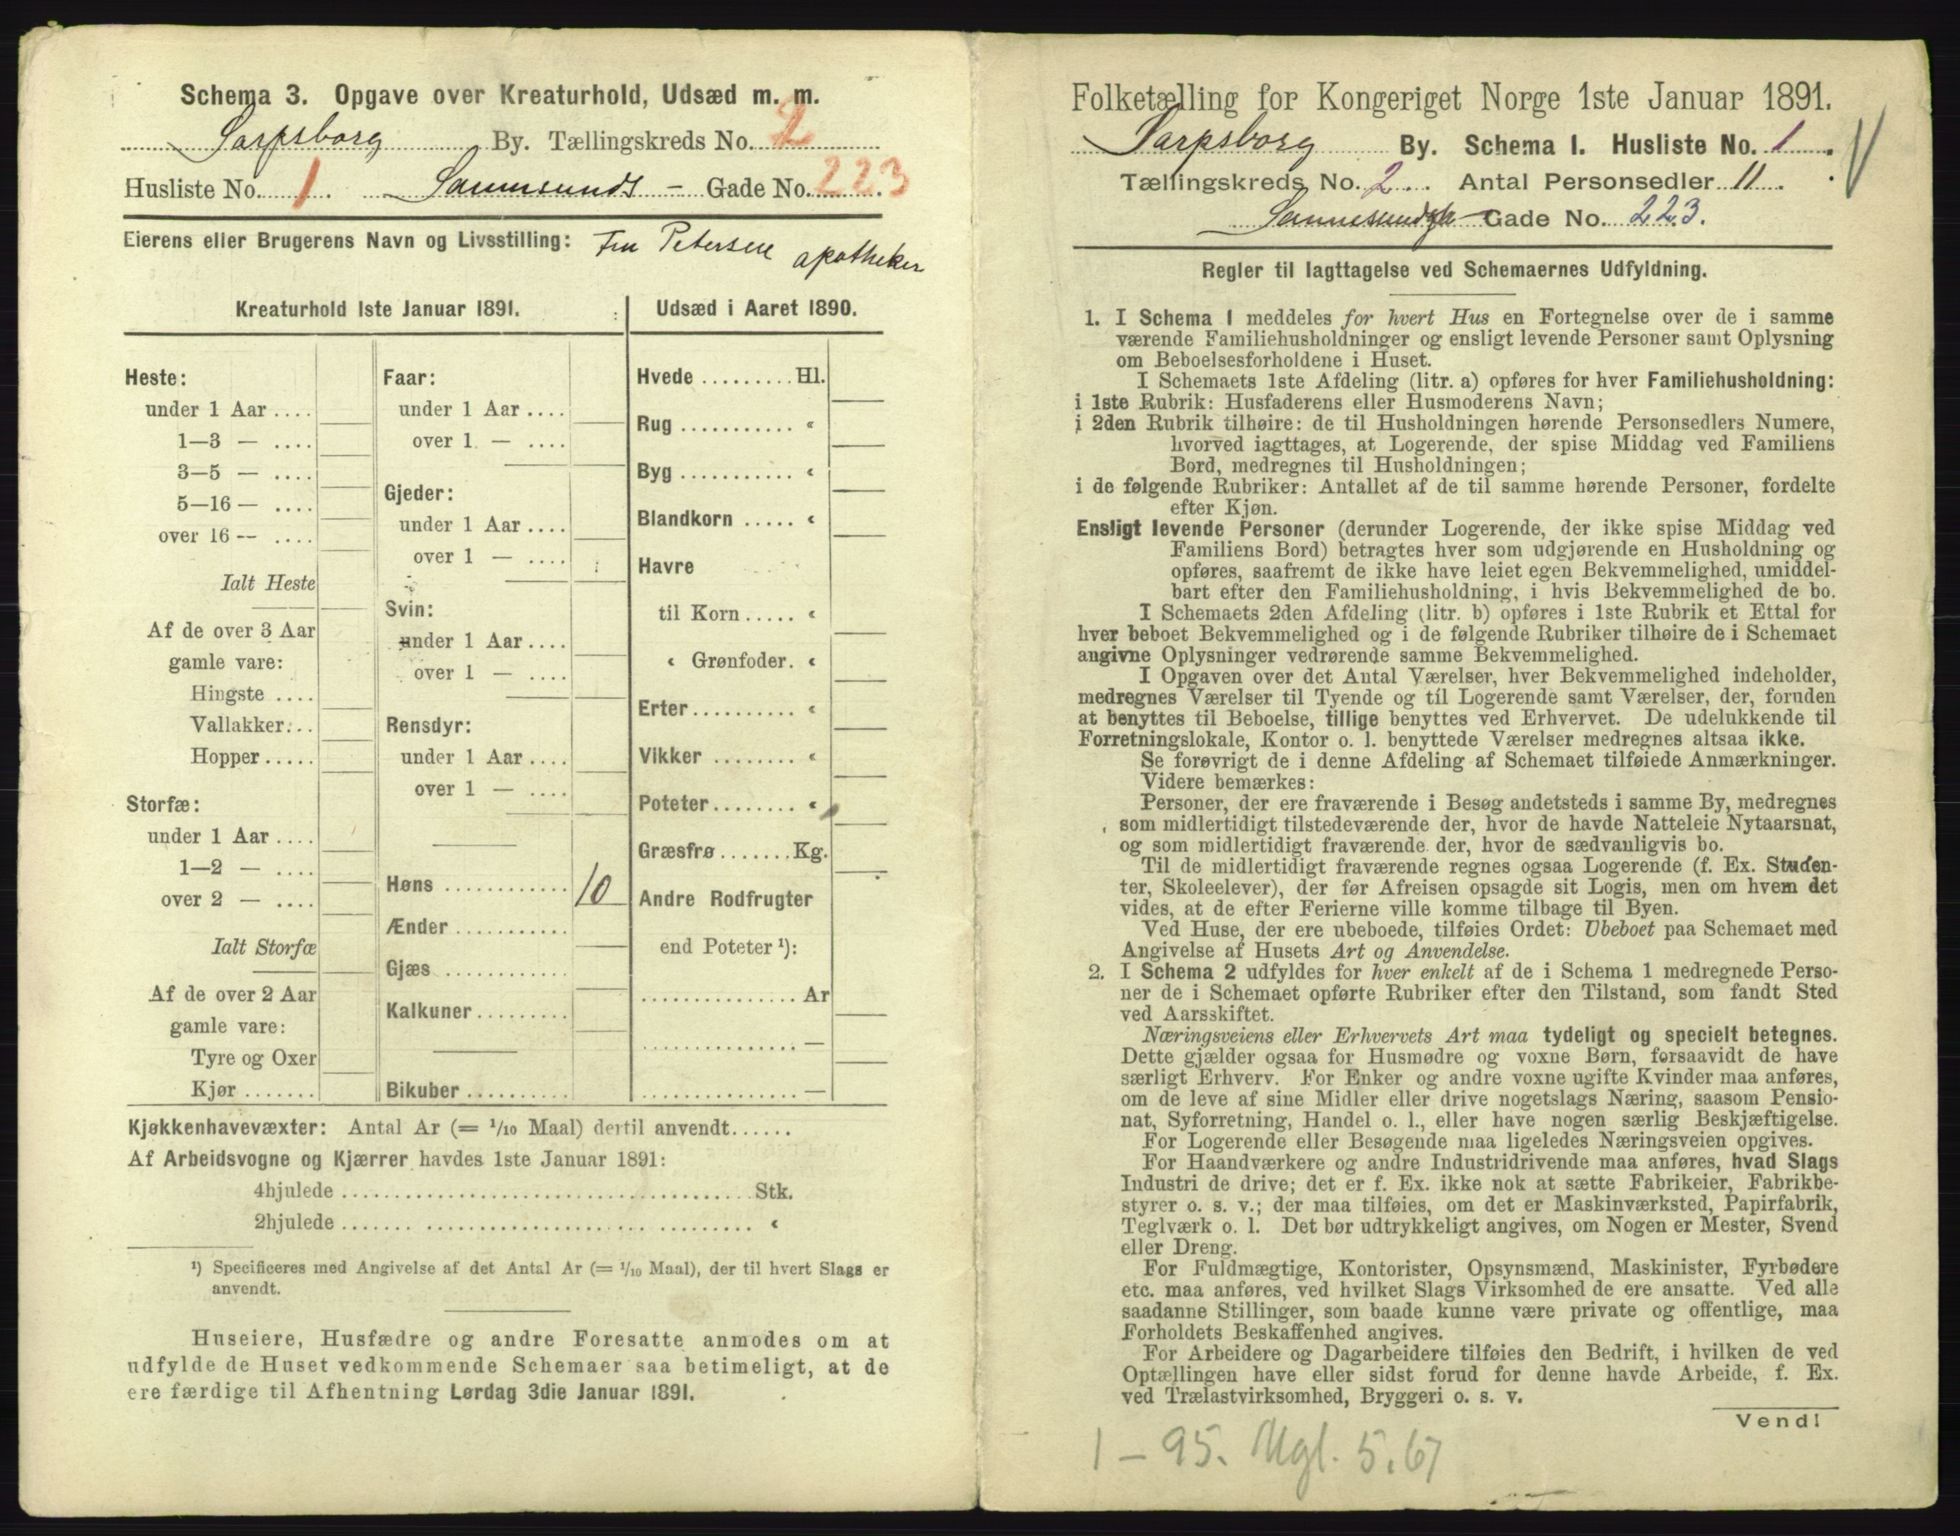 Schema 3. Opgave over Kreaturhold, Udsæd m. m.
Sarpsborg By. Tællingskreds No. 2
Husliste No. 1. Sannesunds - Gade No. 223.
Eierens eller Brugerens Navn og Livsstilling: Fru Petersen apotheker
Kreaturhold 1ste Januar 1891.
Heste:
under 1 Aar ....
1—3 — ....
3—5 — ....
5—16 — ....
over 16 — ....
Ialt Heste
Af de over 3 Aar
gamle vare:
Hingste ....
Vallakker...
Hopper.....
Storfæ:
under 1 Aar ....
1—2 — ....
over 2 — ....
Ialt Storfæ
Af de over 2 Aar
gamle vare:
Tyre og Oxer
Kjør .......
Faar:
under 1 Aar ....
over 1 — ....
Gjeder:
under 1 Aar ....
over 1 — ....
Svin:
under 1 Aar ....
over 1 — ....
Rensdyr:
under 1 Aar ....
over 1 — ....
Høns ............ 10
Ænder ...........
Gjæs ............
Kalkuner.........
Bikuber ..........
Udsæd i Aaret 1890.
Hvede ......... Hl.
Rug ........... «
Byg ........... «
Blandkorn ..... «
Havre
til Korn..... «
« Grønfoder. «
Erter.......... «
Vikker ........ «
Poteter........ «
Græsfrø.......Kg.
Andre Rodfrugter
end Poteter ¹):
............... Ar
............... —
............... —
Kjøkkenhavevæxter: Antal Ar (= 1/10 Maal) dertil anvendt......
Af Arbeidsvogne og Kjærrer havdes 1ste Januar 1891:
4hjulede ..................................... Stk.
2hjulede ..................................... «
¹) Specificeres med Angivelse af det Antal Ar (= 1/10 Maal), der til hvert Slags er
anvendt.
Huseiere, Husfædre og andre Foresatte anmodes om at
udfylde de Huset vedkommende Schemaer saa betimeligt, at de
ere færdige til Afhentning Lørdag 3die Januar 1891.
Folketælling for Kongeriget Norge 1ste Januar 1891.
Sarpsborg By. Schema I. Husliste No. 1.
Tællingskreds No. 2. Antal Personsedler 11.
Gade No. 223.
Regler til Iagttagelse ved Schemaernes Udfyldning.
1. I Schema 1 meddeles for hvert Hus en Fortegnelse over de i samme
værende Familiehusholdninger og ensligt levende Personer samt Oplysning
om Beboelsesforholdene i Huset.
I Schemaets 1ste Afdeling (litr. a) opføres for hver Familiehusholdning:
i 1ste Rubrik: Husfaderens eller Husmoderens Navn;
i 2den Rubrik tilhøire: de til Husholdningen hørende Personsedlers Numere,
hvorved iagttages, at Logerende, der spise Middag ved Familiens
Bord, medregnes til Husholdningen;
i de følgende Rubriker: Antallet af de til samme hørende Personer, fordelte
efter Kjøn.
Ensligt levende Personer (derunder Logerende, der ikke spise Middag ved
Familiens Bord) betragtes hver som udgjørende en Husholdning og
opføres, saafremt de ikke have leiet egen Bekvemmelighed, umiddel-
bart efter den Familiehusholdning, i hvis Bekvemmelighed de bo.
I Schemaets 2den Afdeling (litr. b) opføres i 1ste Rubrik et Ettal for
hver beboet Bekvemmelighed og i de følgende Rubriker tilhøire de i Schemaet
angivne Oplysninger vedrørende samme Bekvemmelighed.
I Opgaven over det Antal Værelser, hver Bekvemmelighed indeholder,
medregnes Værelser til Tyende og til Logerende samt Værelser, der, foruden
at benyttes til Beboelse, tillige benyttes ved Erhvervet. De udelukkende til
Forretningslokale, Kontor o. l. benyttede Værelser medregnes altsaa ikke.
Se forøvrigt de i denne Afdeling af Schemaet tilføiede Anmærkninger.
Videre bemærkes:
Personer, der ere fraværende i Besøg andetsteds i samme By, medregnes
som midlertidigt tilstedeværende der, hvor de havde Natteleie Nytaarsnat,
og som midlertidigt fraværende der, hvor de sædvanligvis bo.
Til de midlertidigt fraværende regnes ogsaa Logerende (f. Ex. Studen-
ter, Skoleelever), der før Afreisen opsagde sit Logis, men om hvem det
vides, at de efter Ferierne ville komme tilbage til Byen.
Ved Huse, der ere ubeboede, tilføies Ordet: Ubeboet paa Schemaet med
Angivelse af Husets Art og Anvendelse.
2. I Schema 2 udfyldes for hver enkelt af de i Schema 1 medregnede Perso-
ner de i Schemaet opførte Rubriker efter den Tilstand, som fandt Sted
ved Aarsskiftet.
Næringsveiens eller Erhvervets Art maa tydeligt og specielt betegnes.
Dette gjælder ogsaa for Husmødre og voxne Børn, forsaavidt de have
særligt Erhverv. For Enker og andre voxne ugifte Kvinder maa anføres,
om de leve af sine Midler eller drive nogetslags Næring, saasom Pensio-
nat, Syforretning, Handel o. l., eller have nogen særlig Beskjæftigelse.
For Logerende eller Besøgende maa ligeledes Næringsveien opgives.
For Haandværkere og andre Industridrivende maa anføres, hvad Slags
Industri de drive; det er f. Ex. ikke nok at sætte Fabrikeier, Fabrikbe-
styrer o. s. v.; der maa tilføies, om det er Maskinværksted, Papirfabrik,
Teglværk o. l. Det bør udtrykkeligt angives, om Nogen er Mester, Svend
eller Dreng.
For Fuldmægtige, Kontorister, Opsynsmænd, Maskinister, Fyrbødere
etc. maa anføres, ved hvilket Slags Virksomhed de ere ansatte. Ved alle
saadanne Stillinger, som baade kunne være private og offentlige, maa
Forholdets Beskaffenhed angives.
For Arbeidere og Dagarbeidere tilføies den Bedrift, i hvilken de ved
Optællingen have eller sidst forud for denne havde Arbeide, f. Ex.
ved Trælastvirksomhed, Bryggeri o. s. v.
Vend!
1 - 95. Mgl. 5.67